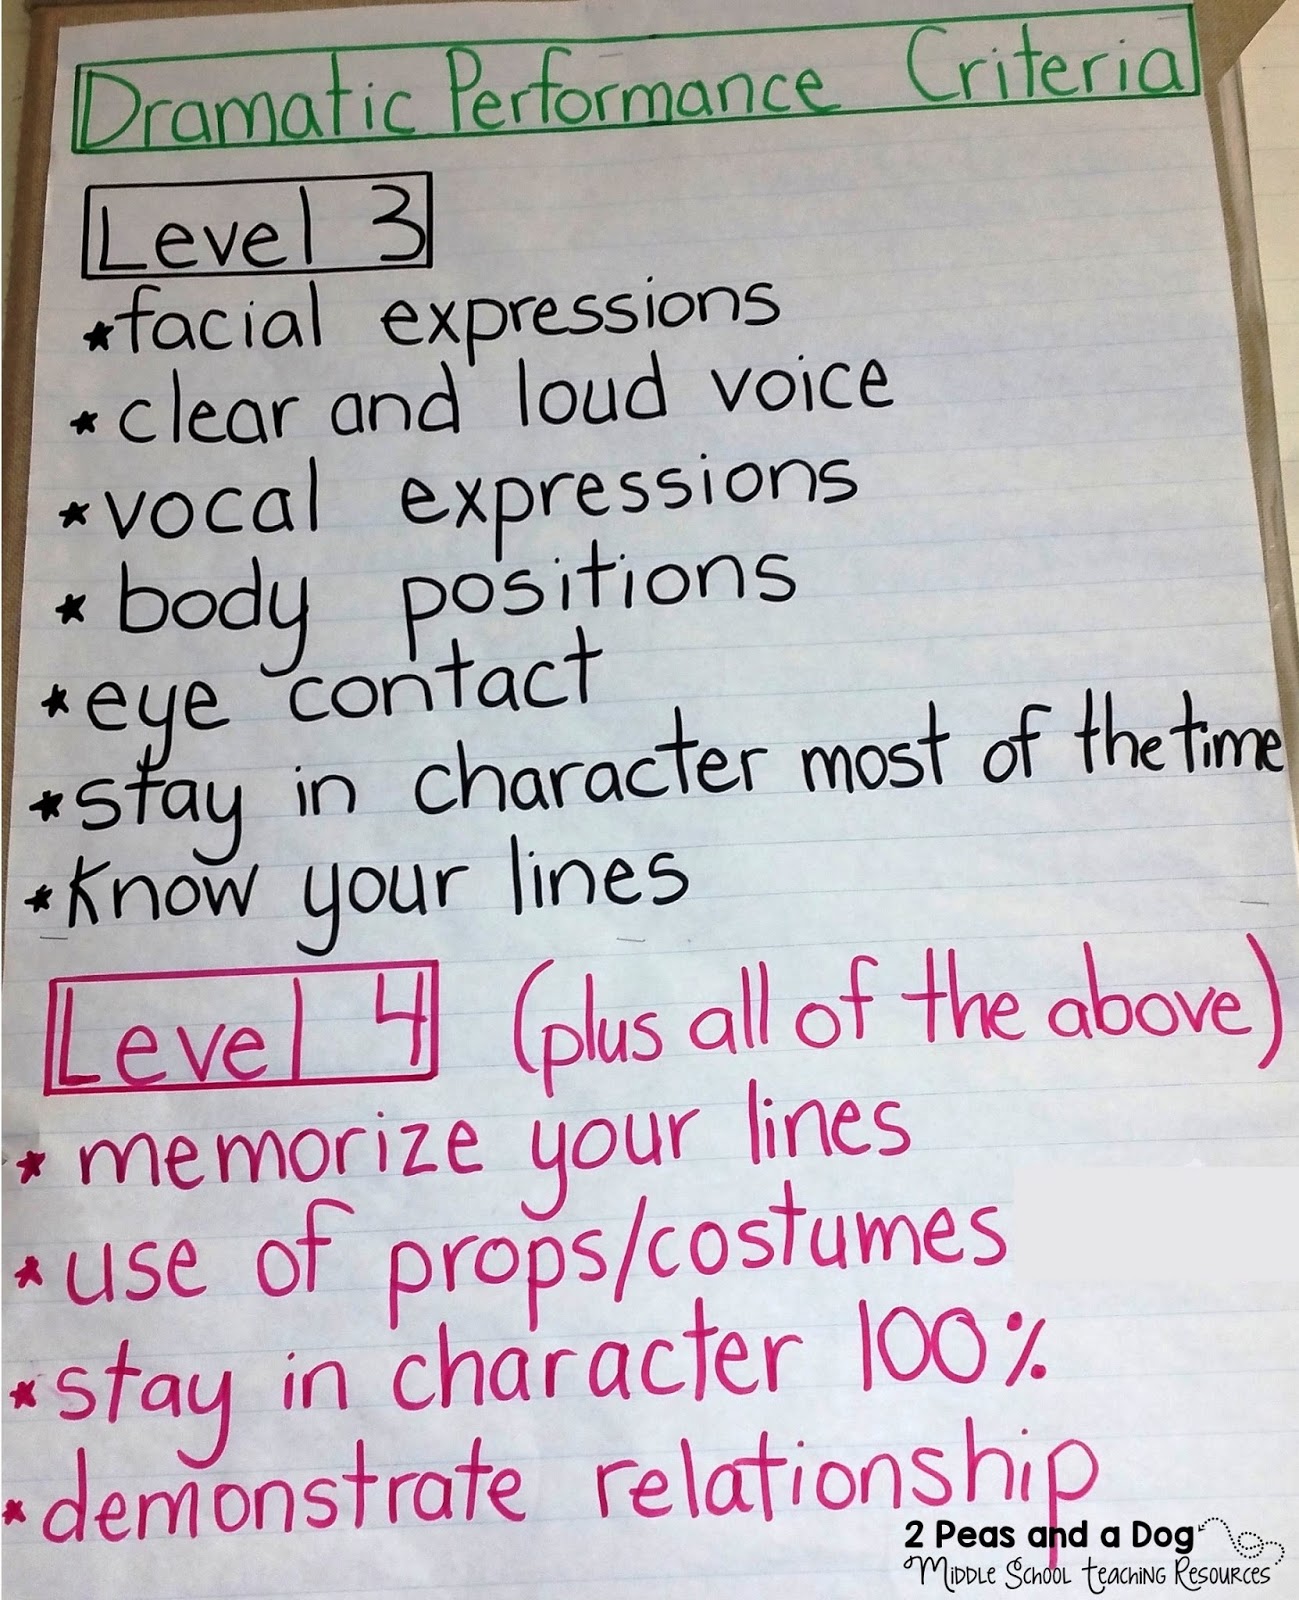 Dramatic Performance Criteria
Level 3
*facial expressions
*clear and loud voice
*vocal expressions
*body positions
*eye contact
*stay in character most of the time
*Know your lines
Level 4 (plus all of the above)
*memorize your lines
*use of props/costumes
*stay in character 100%
*demonstrate relationship
2 Peas and a Dog
Middle School Teaching Resources